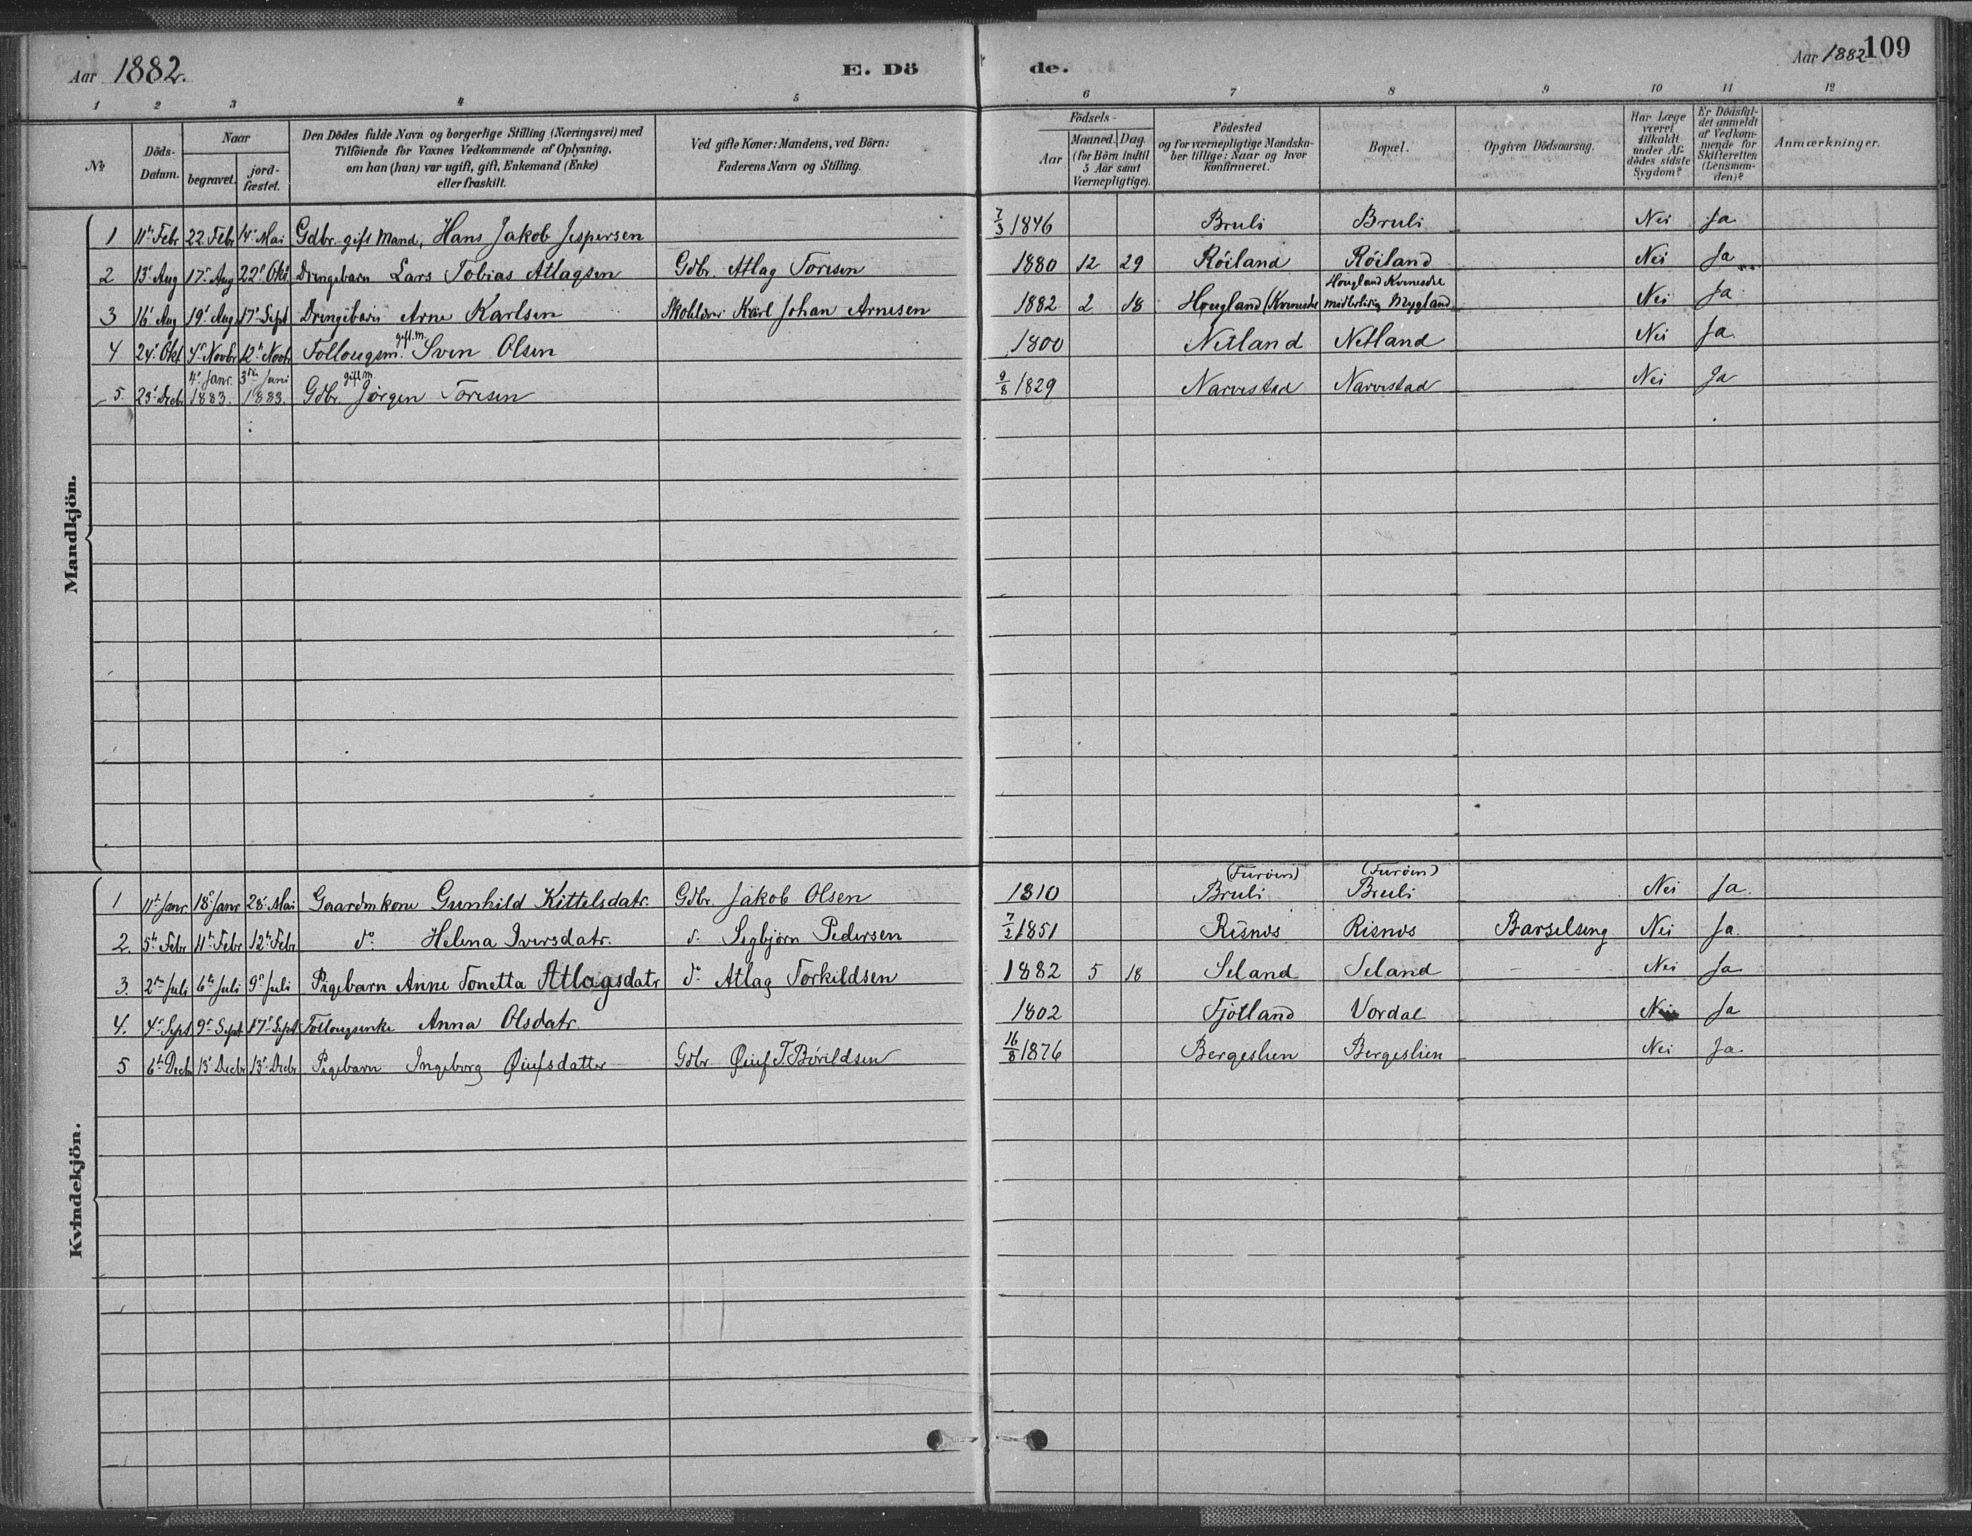 Aar 1882. E. Dö de. Aar 1882 109
1 2 3 4 5 6 7 8 9 10 11 12
№ Döds-Datum. Naar begravet. jord-fæstet. Den Dödes fulde Navn og borgerlige Stilling (Næringsvei) med Tilföiende for Voxnes Vedkommende af Oplysning, om han (hun) var ugift, gift, Enkemand (Enke) eller fraskilt. Ved gifte Koner: Mandens, ved Börn: Faderens Navn og Stilling. Födsels- Aar Maaned. Dag. (for Börn indtil 5 Aar samt Værnepligtige). Födested og for værnepligtige Mandskaber tillige: Naar og hvor Konfirmeret. Bopæl. Opgiven Dödsaarsag. Har Læge været tilkaldt under Afdödes sidste Sygdom? Er Dödsfaldet anmeldt af Vedkommende for Skifteretten (Lensmanden)? Anmærkninger.
Mandkjön.
1 11te Febr 22 Febr 14 Mai Gdbr. gift Mand, Hans Jakob Jespersen 7/3 1846 Bruli Bruli Nei Ja
2 13' Aug 17' Aug 22' Okt Drengebarn Lars Tobias Atlagsen Gdbr. Atlag Toresen 1880 12 29 Röiland Röiland Nei Ja
3 16' Aug 19' Aug 17' Sept Drengebarn Arne Karlsen Skolelærer Karl Johan Arnesen 1882 2 18 Hougland (Kvinesdal Hougland Kvinesdal midlertidig Mygland Nei Ja
4 24' Okt 4' Novbr 12te Novbr Follougsm. gift m. Sven Olsen 1800 Netland Netland Nei Ja.
5. 23' Decbr 4' Janr. 1883. 3die Juni 1883. Gdbr. gift m. Jörgen Toresen 9/8 1829 Narvestad Narvestad Nei Ja
Kvindekjön.
1 11te Janr 18' Janr 28' Mai Gaardmkone Gunhild Kittelsdatr. Gdbr. Jakob Olsen 1810 (Furöien) Bruli (Furöien) Bruli Nei Ja.
2. 5te Febr 11te Febr 12te Febr do Helena Iversdatr. do Segbjörn Pedersen 1851 Risnes Risnes Barselseng Nei Ja.
3. 2den Juli 6te Juli 9' Juli Pigebarn Anne Tonetta Atlagsdatr do Atlag Torkildsen 1882 5 18 Seland Seland - - Nei Ja
4. 4' Sept 9' Sept 17' Sept Follougsenke Anna Olsdatr. 1802 Fjotland Vordal Nei Ja
5 6te Decbr 13' Decbr 13' Decbr Pigebarn Ingeborg Øiufsdatter Gdbr Øiuf T. Börildsen 16/8 1876 Bergeslien Bergeslien Nei Ja.